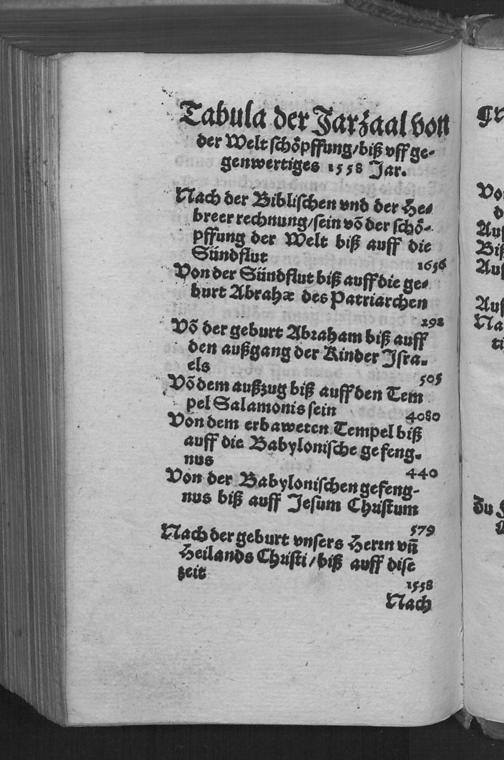 Tabula der Jarzaal von
der Welt schöpffung/biß vff ge-
genwertiges 1558 Jar.
Nach der Biblischen vnd der He-
breer rechnung/sein vō der schö-
pffung der Welt biß auff die
Sündflut 1656
Von der Sündflut biß auff die ge-
burt Abrahæ des Patriarchen
292
Vō der geburt Abraham biß auff
den außgang der Kinder Isra-
els
505
Vō dem außzug biß auff den Tem
pel Salamonis sein 4080
Von dem erbaweten Tempel biß
auff die Babylonische gefeng-
nus 440
Von der Babylonischen gefeng-
nus biß auff Jesum Christum
579
Nach der geburt vnsers Herrn vn̄
Heilands Christi/biß auff dise
zeit 1558
Nach
Vo
d
Auf
Biß
Auf
Auf
Na
zu